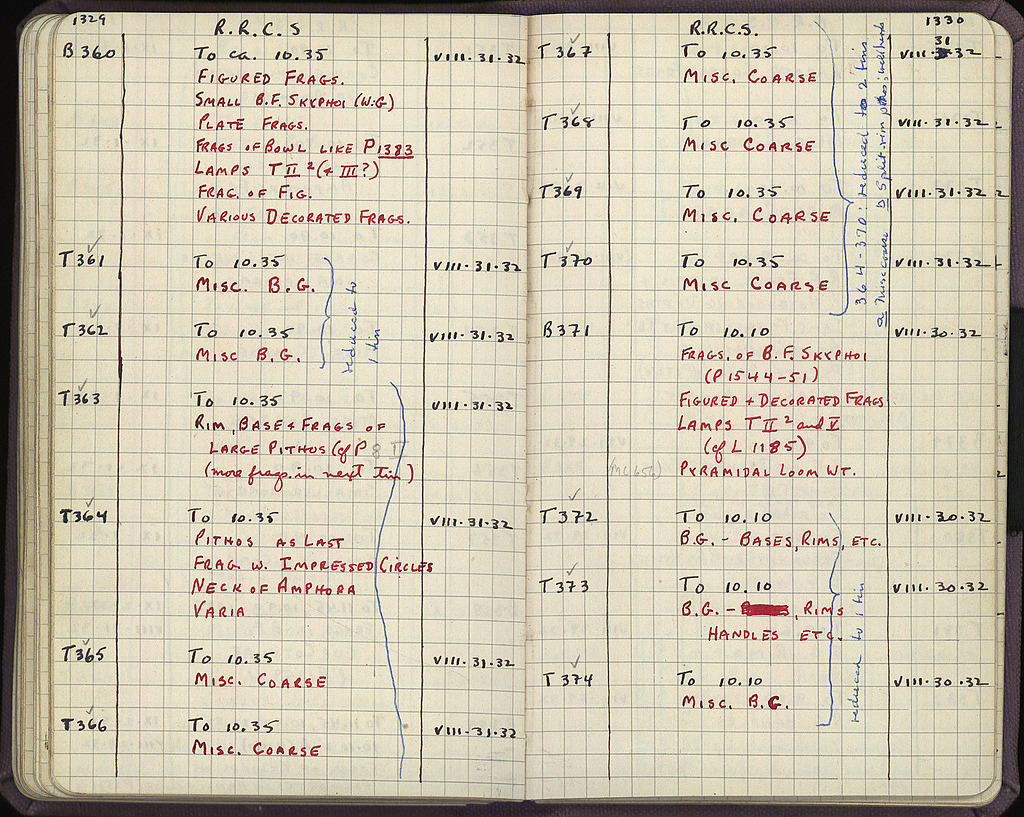 1329
R.R.C.S
B 360 To ca. 10.35 VIII.31.32
FIGURED FRAGS.
SMALL B.F. SKYPHOI (W.G)
PLATE FRAGS.
FRAGS OF BOWL LIKE P1383
LAMPS T II ² (+ III?)
FRAG. OF FIG.
VARIOUS DECORATED FRAGS.
T361 To 10.35 VIII.31.32
MISC. B.G.
T362 To 10.35 VIII.31.32
MISC B.G.
reduced to
1 tin
T363 To 10.35 VIII.31.32
RIM, BASE + FRAGS OF
LARGE PITHOS (cf P
(more frags. in next tin)
T364 To 10.35 VIII.31.32
PITHOS AS LAST
FRAG W. IMPRESSED CIRCLES
NECK OF AMPHORA
VARIA
T365 To 10.35 VIII.31.32
MISC. COARSE
T366 To 10.35 VIII.31.32
MISC. COARSE
1330
R.R.C.S.
T367 To 10.35 VIII.31.32
MISC. COARSE
T368 To 10.35 VIII.31.32
MISC COARSE
T369 To 10.35 VIII.31.32
MISC. COARSE
T370 To 10.35 VIII.31.32
MISC COARSE
364-370: reduced to 2 tins
a misc coarse b Split-rim
B371 To 10.10 VIII.30.32
FRAGS. OF B.F. SKYPHOI
(P1544-51)
FIGURED + DECORATED FRAGS
LAMPS T II ² and V
(cf L 1185)
(MC 656) PYRAMIDAL LOOM WT.
T372 To 10.10 VIII.30.32
B.G. - BASES, RIMS, ETC.
T373 To 10.10 VIII.30.32
B.G. - , RIMS
HANDLES ETC.
T374 To 10.10 VIII.30.32
MISC. B.G.
reduced to 1 tin